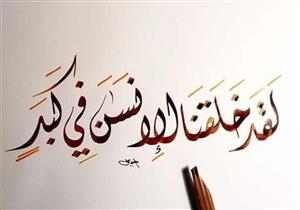 لَقَدْ خَلَقْنَا الْإِنسَنَ فِي كَبَدٍ